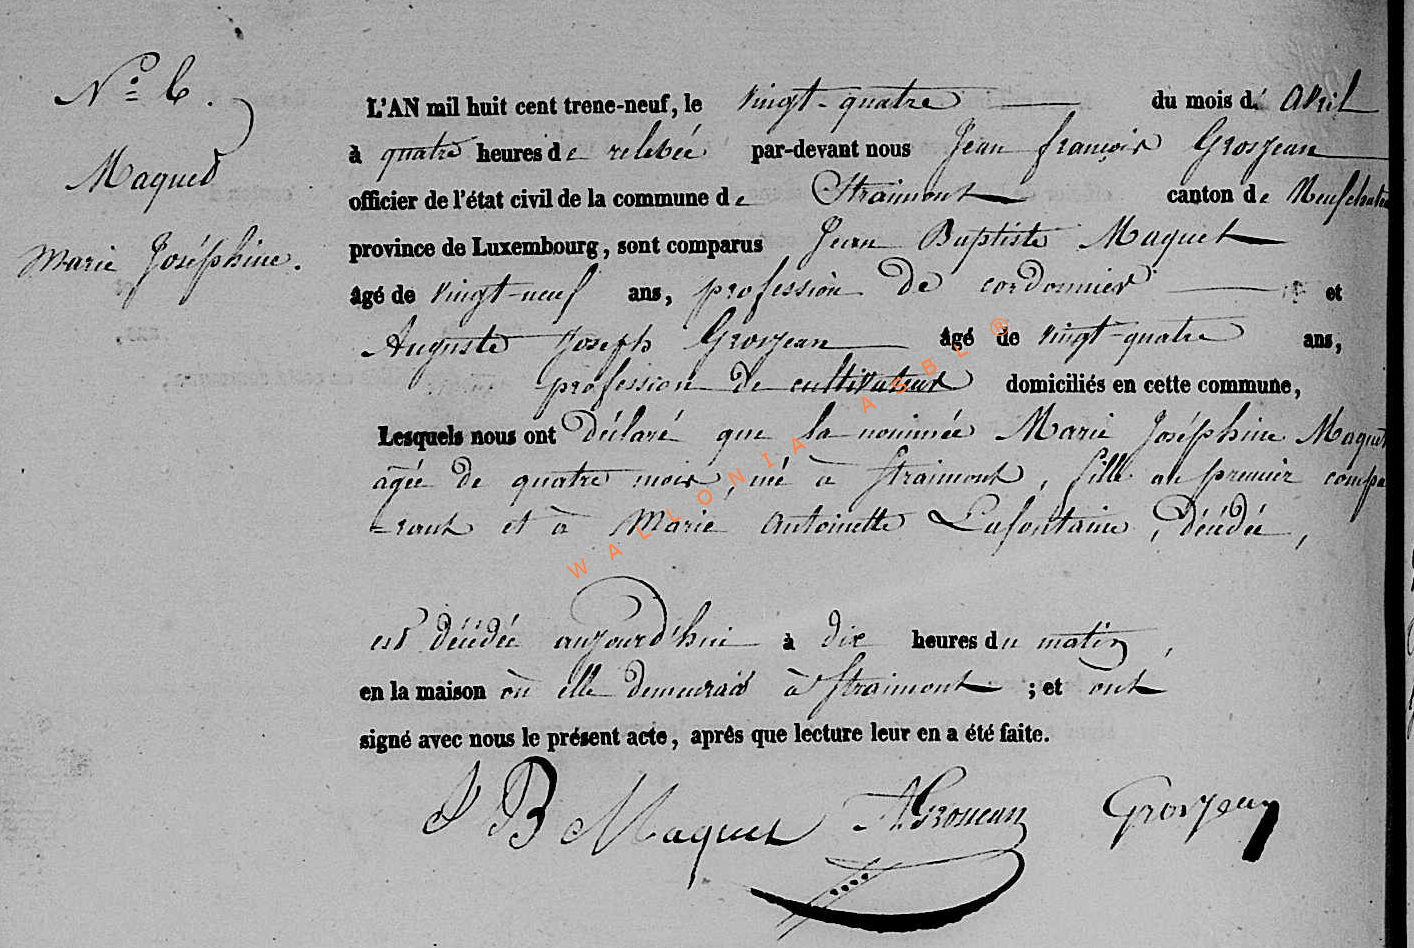 N° 6.
Maquet
Marie Joséphine.
L'AN mil huit cent trene-neuf, le vingt-quatre du mois d' avril
à quatre heures de relevée par-devant nous Jean françois Grosjean
officier de l'état civil de la commune de Straimont canton de Neufchateau
province de Luxembourg, sont comparus Jean Baptiste Maquet
âgé de vingt-neuf ans, profession de cordonnier et
Auguste Joseph Grosjean âgé de vingt-quatre ans,
profession de cultivateur domiciliés en cette commune,
Lesquels nous ont déclaré que la nommée Marie Joséphine Maquet
âgée de quatre mois, né à Straimont, fille au premier compa
-rant et à Marie Antoinette Lafontaine, décédée,
est décédée aujourd'hui à dix heures du matin,
en la maison où elle demeurait à Straimont ; et ont
signé avec nous le présent acte, après que lecture leur en a été faite.
J B Maquet A Grosjean Grosjean
WALLONIA ASBL ®